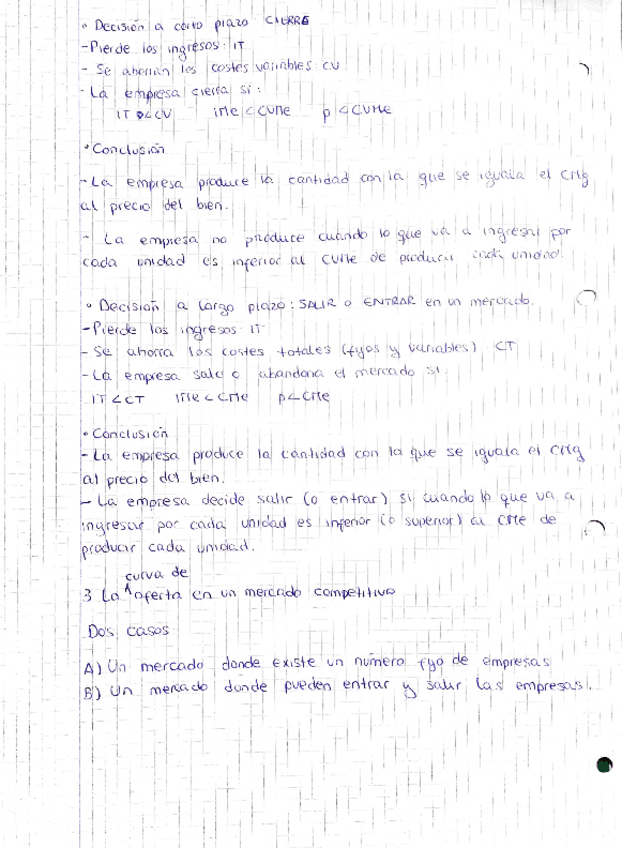 • Decisión a corto plazo CIERRE
- Pierde los ingresos: IT
- Se ahorran los costes variables CV
- La empresa cierra si:
IT < CV IMe < CVMe p < CVMe
• Conclusión
- La empresa produce la cantidad con la que se iguala el CMg
al precio del bien.
- La empresa no produce cuándo lo que va a ingresar por
cada unidad es inferior al CVMe de producir cada unidad.
• Decisión a largo plazo: SALIR o ENTRAR en un mercado.
- Pierde los ingresos IT
- Se ahorra los costes totales (fijos y variables) CT
- La empresa sale o abandona el mercado si:
IT < CT IMe < CMe p < CMe
• Conclusión
- La empresa produce la cantidad con la que se iguala el CMg
al precio del bien.
- La empresa decide salir (o entrar) si cuando lo que va a
ingresar por cada unidad es inferior (o superior) al CMe de
producir cada unidad.
curva de
3 La ^ oferta en un mercado competitivo
Dos casos
A) Un mercado donde existe un número fijo de empresas
B) Un mercado donde pueden entrar y salir las empresas.